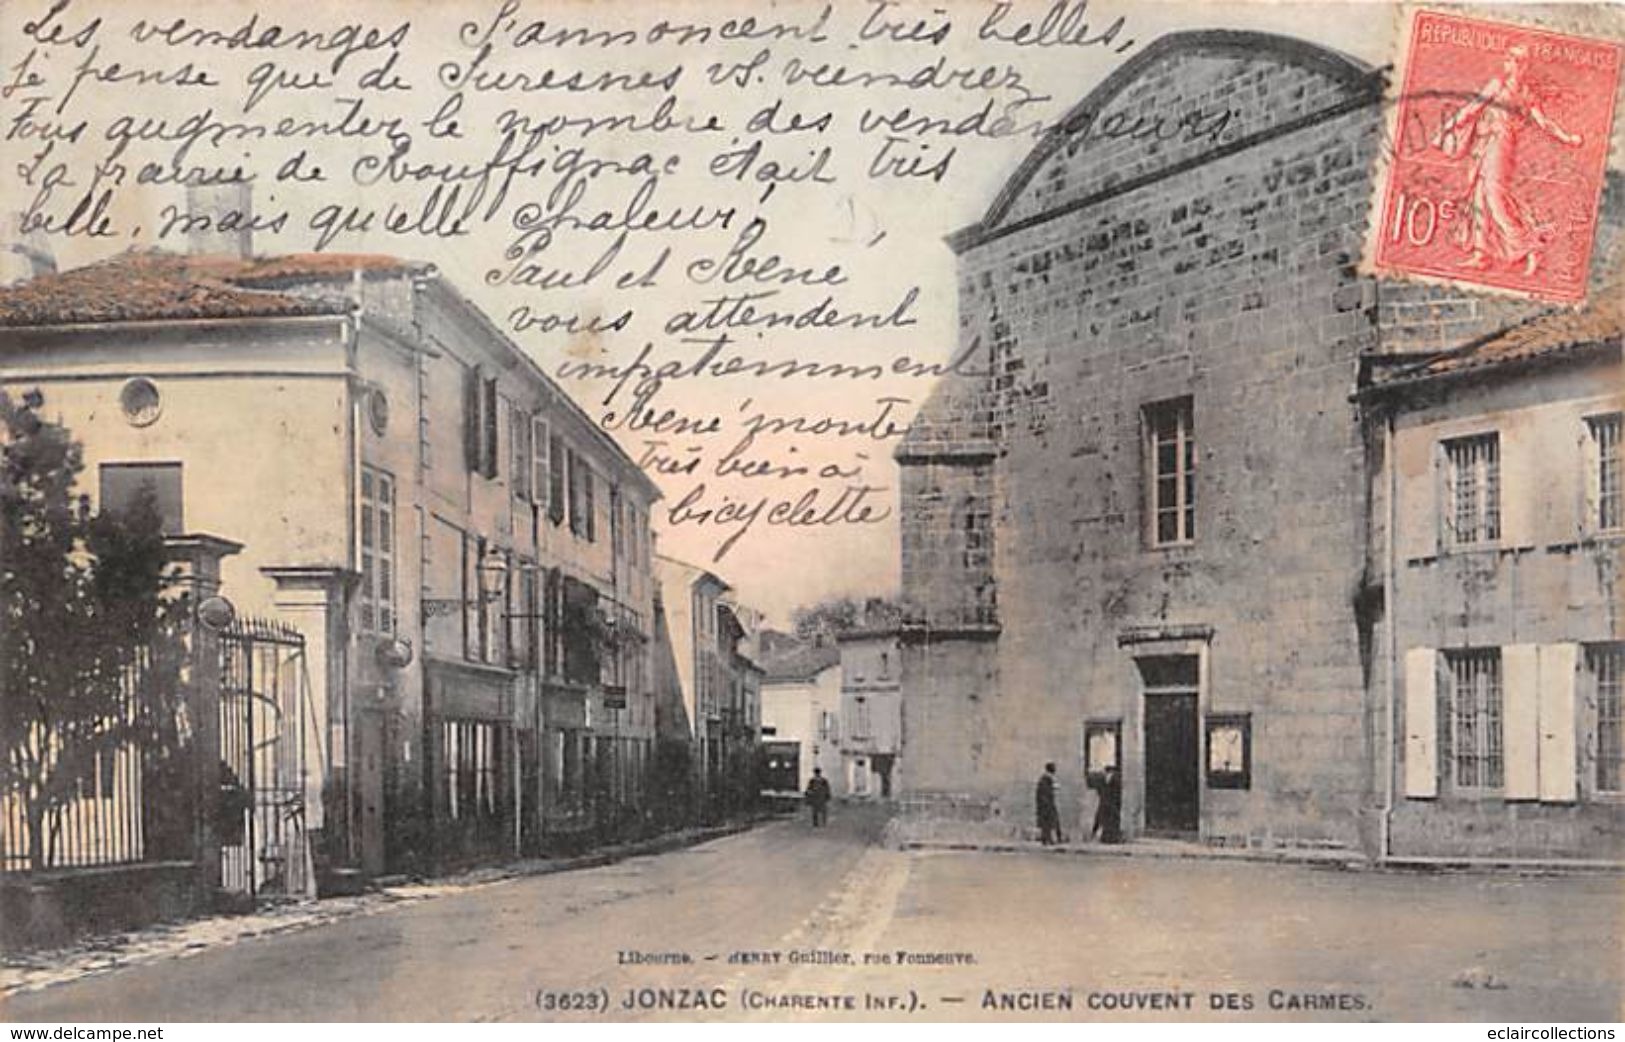 Les vendanges s'annoncent très belles,
je pense que de Suresnes vs. viendrez
tous augmenter le nombre des vendangeurs.
La frairie de Rouffignac était très
belle, mais qu'elle chaleur,
Paul et Rene
vous attendent
impatiemment
René monte
très bien à
bicyclette
REPUBLIQUE FRANÇAISE
10c
POSTES
Libourne. — HENRY Guillier, rue Fonneuve.
(3623) JONZAC (CHARENTE INF.). — ANCIEN COUVENT DES CARMES.
eclaircollections